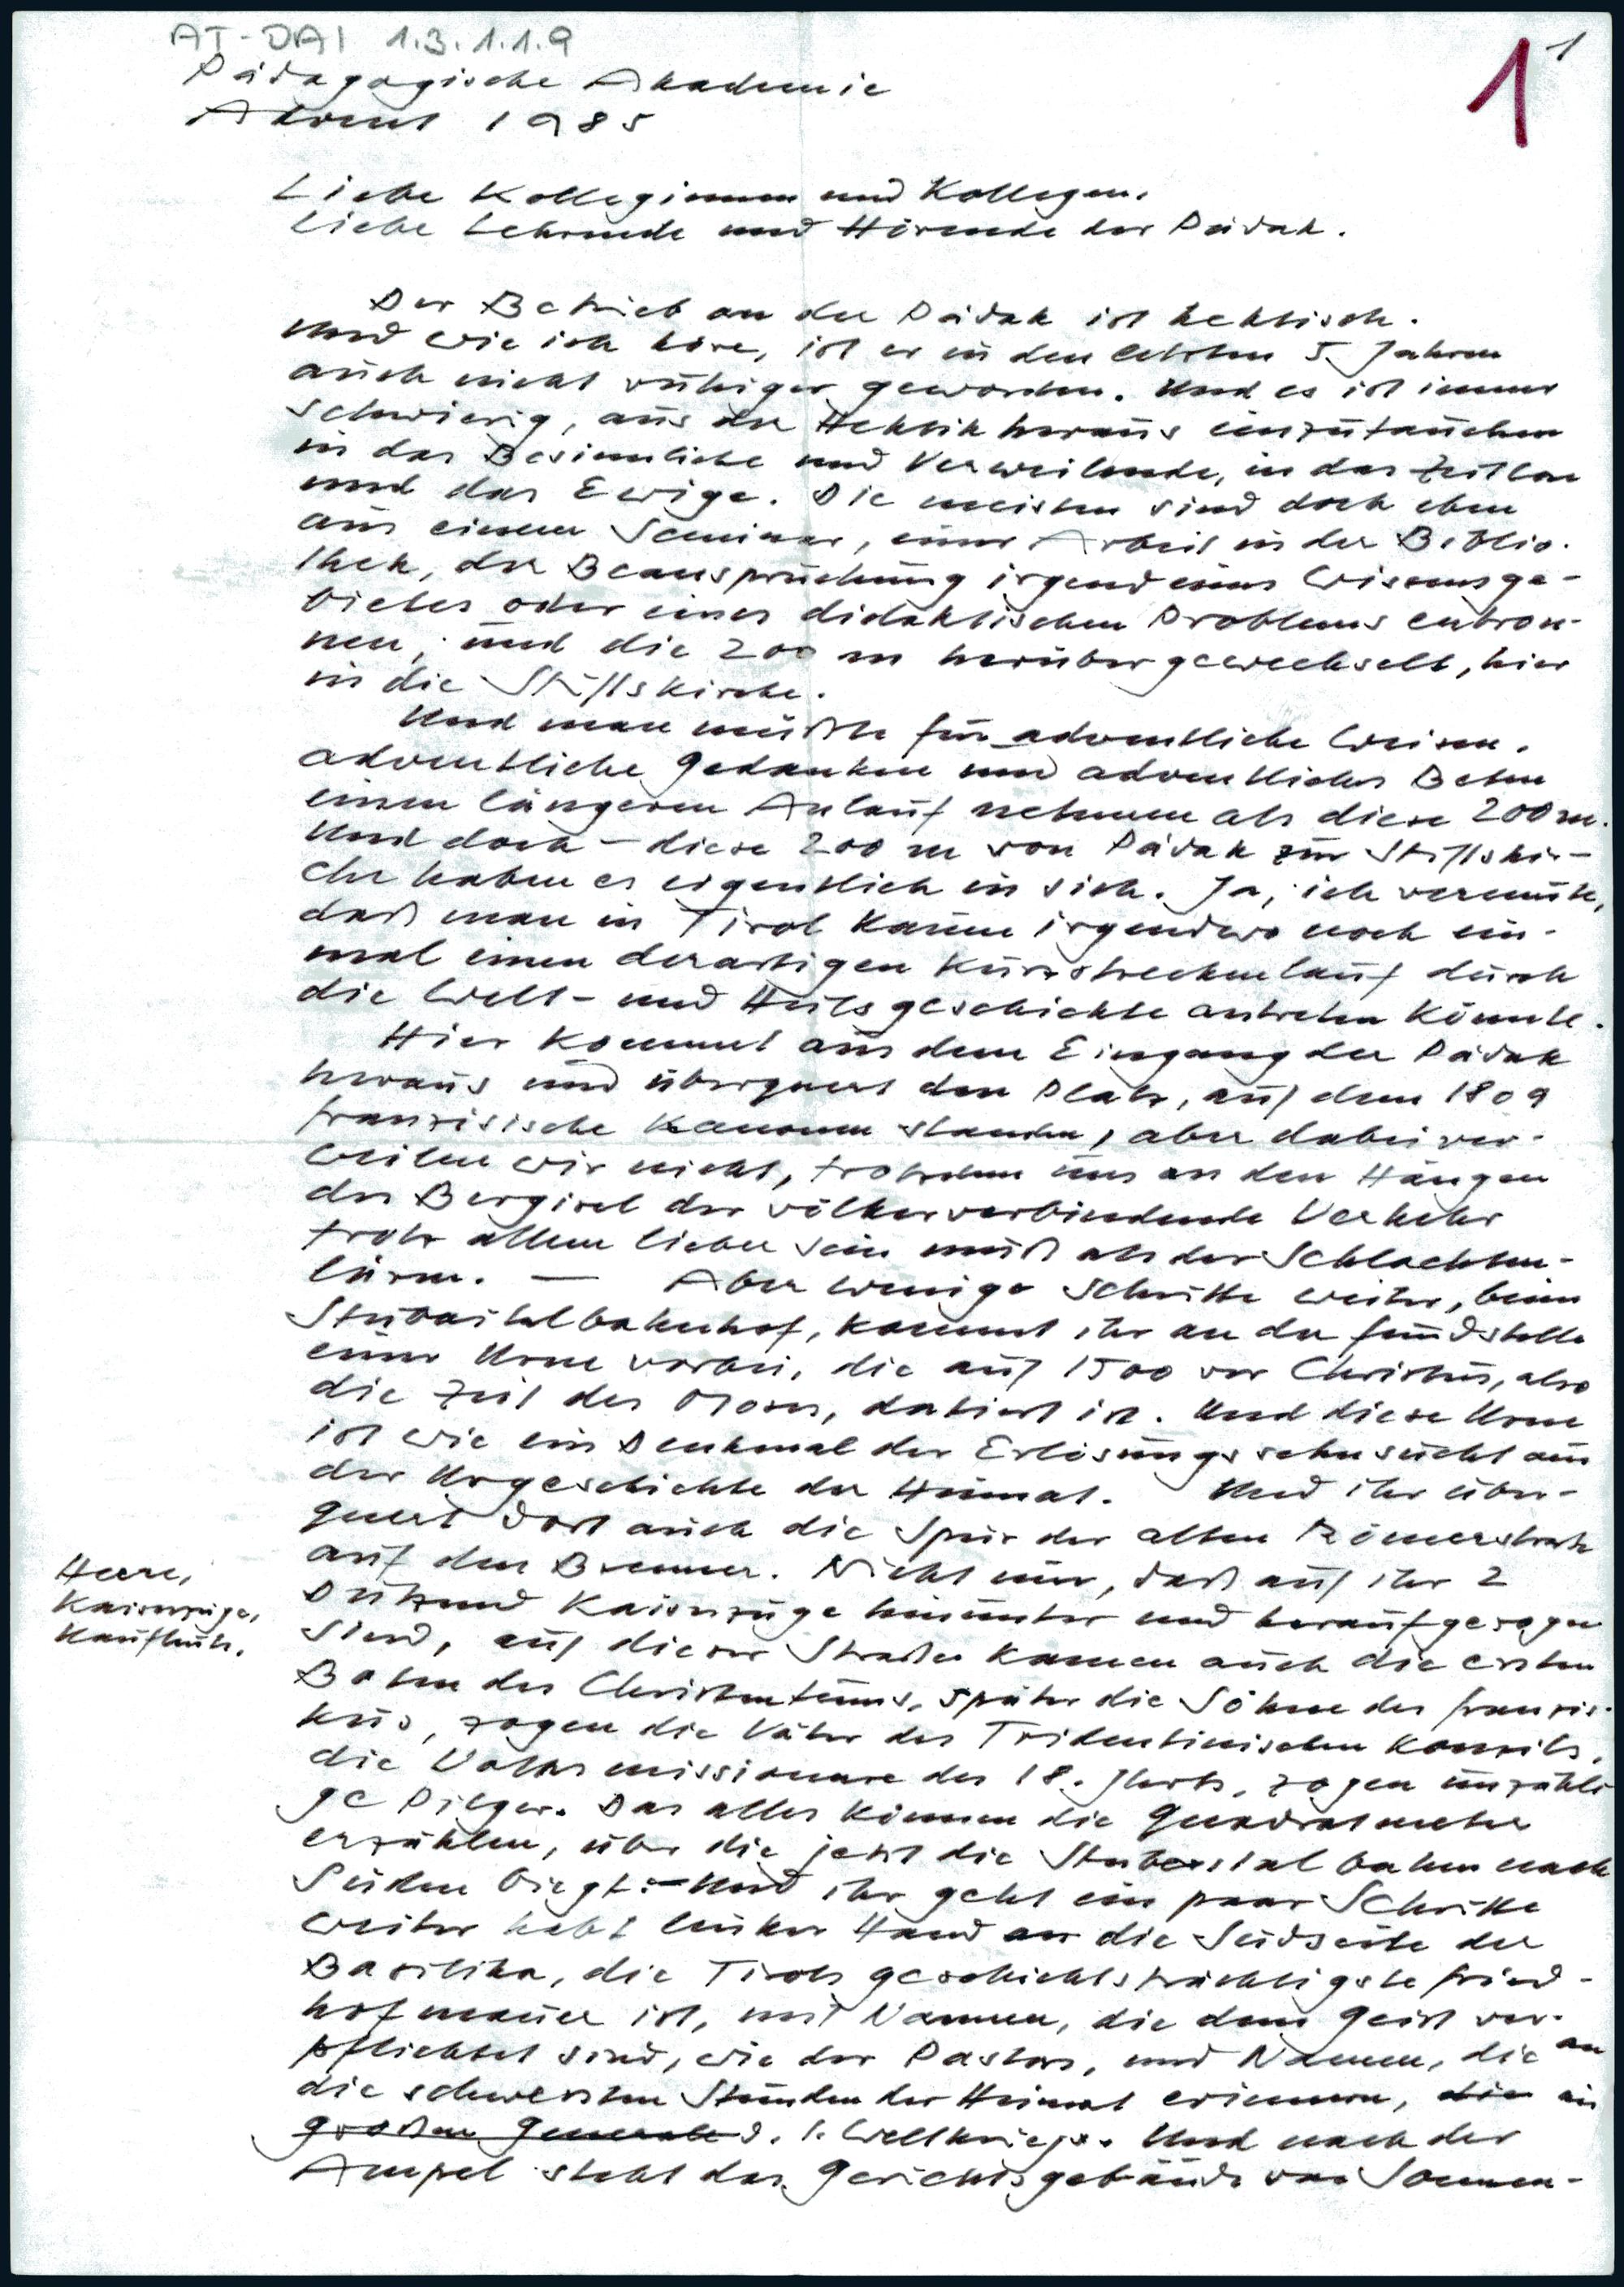 AT-DAI 1.3.1.1.9
1
1
Pädagogische Akademie
Advent 1985
Liebe Kolleginnen und Kollegen.
Liebe Lehrende und Hörende der Pädak.
Der Betrieb an der Pädak ist hektisch.
Und wie ich höre, ist er in den letzten 5 Jahren
auch nicht ruhiger geworden. Und es ist immer
schwierig, aus der Hektik heraus einzutauchen
in das Besinnliche und Verweilende, in das Zeitlose
und das Ewige. Die meisten sind doch eben
aus einem Seminar, einer Arbeit in der Biblio-
thek, der Beanspruchung irgendeines Wissensge-
bietes oder eines didaktischen Problems entron-
nen, und die 200 m herübergewechselt, hier
in die Stiftskirche.
Und man müßte für adventliche Weisen,
adventliche Gedanken und adventliches Beten
einen längeren Anlauf nehmen als diese 200 m.
Und doch – diese 200 m von Pädak zur Stiftskir-
che haben es eigentlich in sich. Ja, ich vermute,
daß man in Tirol kaum irgendwo noch ein-
mal einen derartigen Kurzstreckenlauf durch
die Welt- und Heilsgeschichte antreten könnte.
Hier kommt aus dem Eingang der Pädak
heraus und überquert den Platz, auf dem 1809
französische Kanonen standen, aber dabei ver-
weilen wir nicht, trotzdem uns an den Hängen
des Bergisel der völkerverbindende Verkehr
trotz allem lieber sein muß als der Schlachten-
lärm. — Aber wenige Schritte weiter, beim
Stubaitalbahnhof, kommt ihr an der Fundstelle
einer Urne vorbei, die auf 1500 vor Christus, also
die Zeit des Moses, datiert ist. Und diese Urne
ist wie ein Denkmal der Erlösungssehnsucht aus
der Urgeschichte der Heimat. Und ihr über-
quert dort auch die Spur der alten Römerstraße
auf den Brenner. Nicht nur, daß auf ihr 2
Heere,
Kaiserzüge,
Kaufleute.
Dutzend Kaiserzüge hinunter und heraufgezogen
sind, auf dieser Straße kamen auch die ersten
Boten des Christentums, später die Söhne des Franzis-
kus, zogen die Väter des Tridentinischen Konzils,
die Volksmissionare des 18. Jhrts, zogen unzähli-
ge Pilger. Das alles können die Quadratmeter
erzählen, über die jetzt die Stubaitalbahn nach
Süden biegt. – Und ihr geht ein paar Schritte
weiter habt linker Hand an die Südseite der
Basilika, die Tirols geschichtsträchtigste Fried-
hofmauer ist, mit Namen, die dem Geist ver-
pflichtet sind, wie der Pastors, und Namen, die an
die schwersten Stunden der Heimat erinnern, die an
großen Generale d. 1. Weltkriegs. Und nach der
Ampel steht das Gerichtsgebäude von Sonnen-